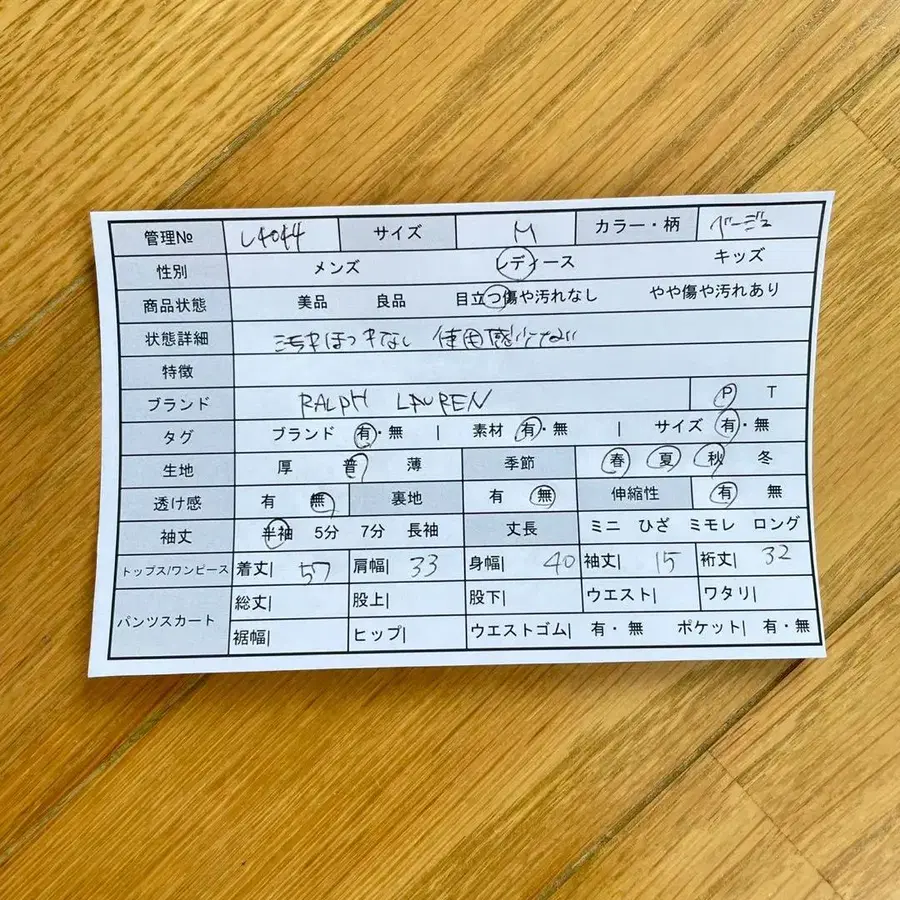 管理№ L4044 サイズ M カラー・柄 ベージュ
性別 メンズ レディース キッズ
商品状態 美品 良品 目立つ傷や汚れなし やや傷や汚れあり
状態詳細 汚れほつれなし 使用感少ない
特徴
ブランド RALPH LAUREN P T
タグ ブランド 有・無 | 素材 有・無 | サイズ 有・無
生地 厚 普 薄 季節 春 夏 秋 冬
透け感 有 無 裏地 有 無 伸縮性 有 無
袖丈 半袖 5分 7分 長袖 丈長 ミニ ひざ ミモレ ロング
トップス/ワンピース 着丈| 57 肩幅| 33 身幅| 40 袖丈| 15 裄丈| 32
パンツスカート 総丈| 股上| 股下| ウエスト| ワタリ|
裾幅| ヒップ| ウエストゴム| 有・無 ポケット| 有・無